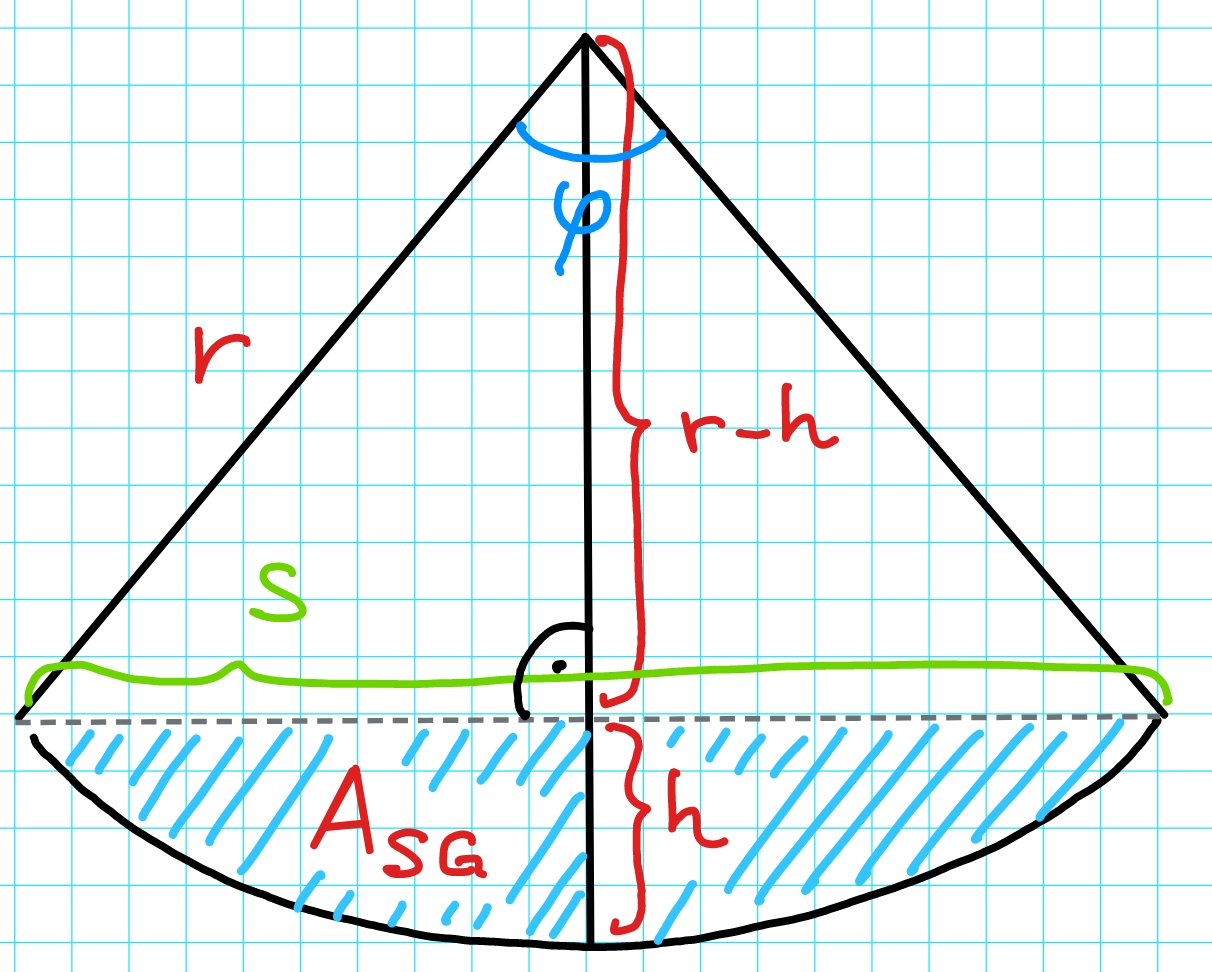 φ
r
r-h
s
A_SG
h